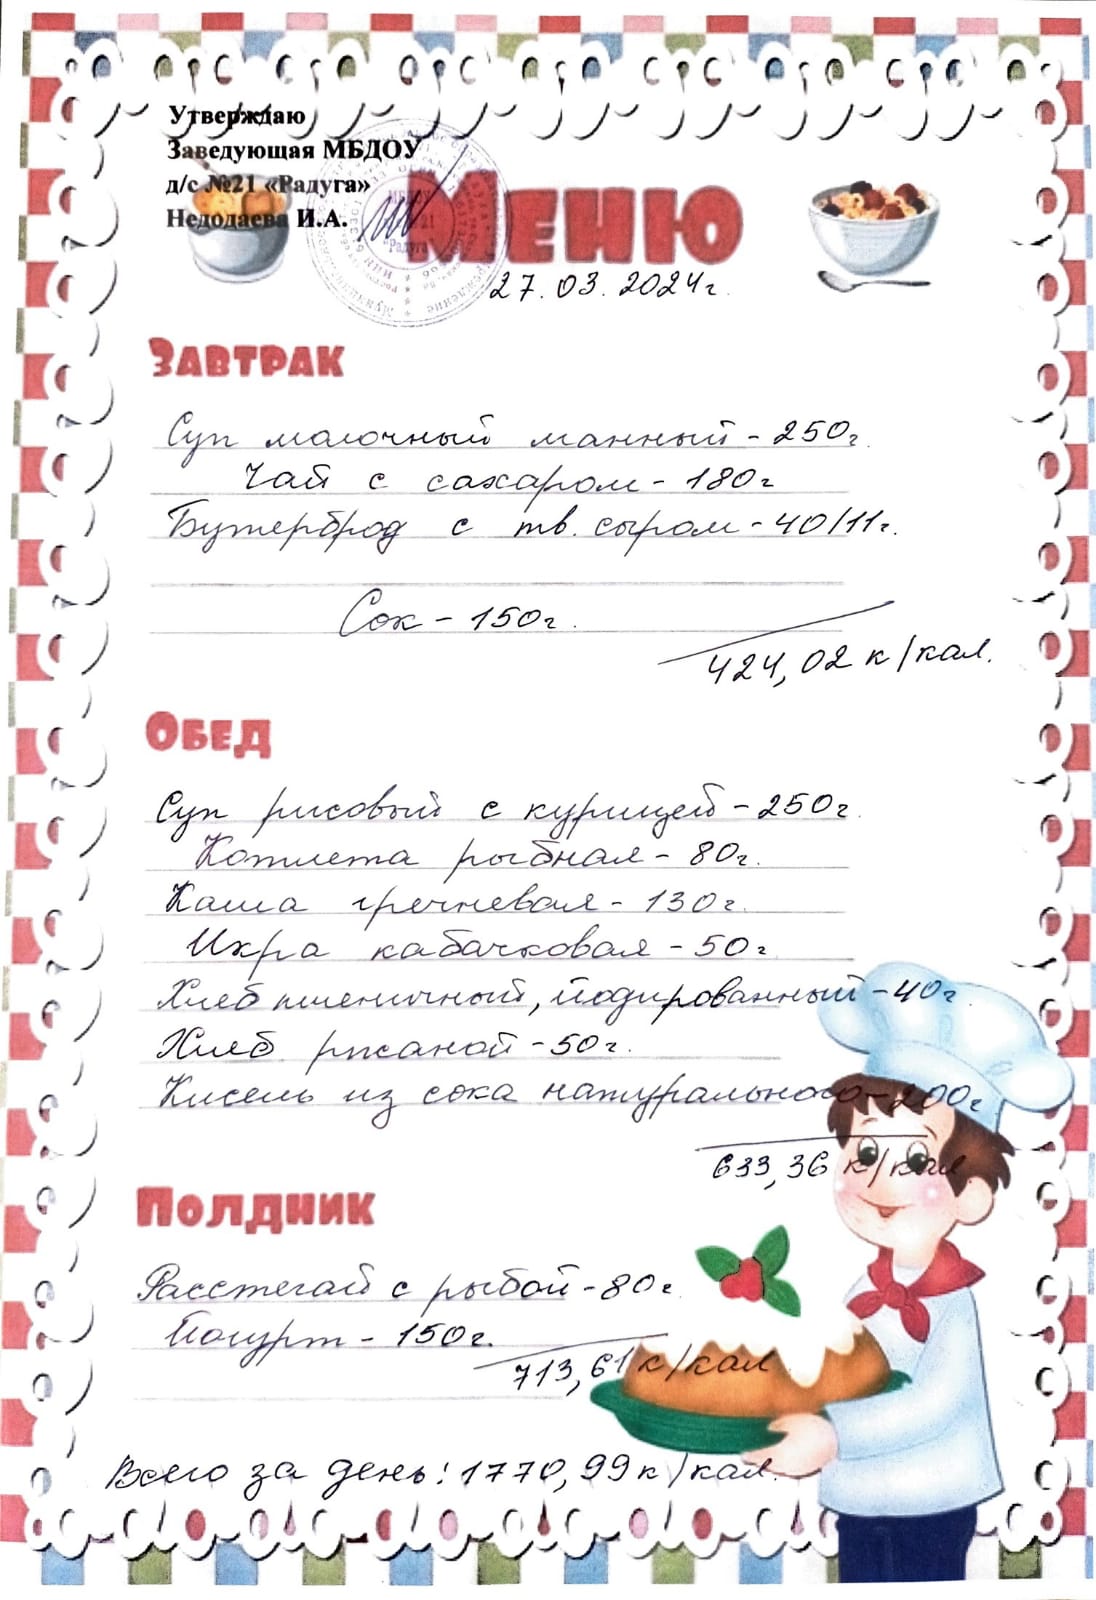 Утверждаю
Заведующая МБДОУ
д/с №21 «Радуга»
Недодаева И.А.
Меню
27.03.2024г.
Завтрак
Суп молочный манный - 250г.
Чай с сахаром - 180г
Бутерброд с тв. сыром - 40/11г.
Сок - 150г.
424,02 к/кал.
Обед
Суп рисовый с курицей - 250г.
Котлета рыбная - 80г.
Каша гречневая - 130г.
Икра кабачковая - 50г
Хлеб пшеничный, йодированный - 40г
Хлеб ржаной - 50г.
Кисель из сока натурального - 200г
633,36 к/кал.
Полдник
Расстегай с рыбой - 80г.
Йогурт - 150г.
713,61 к/кал
Всего за день: 1770,99 к/кал.